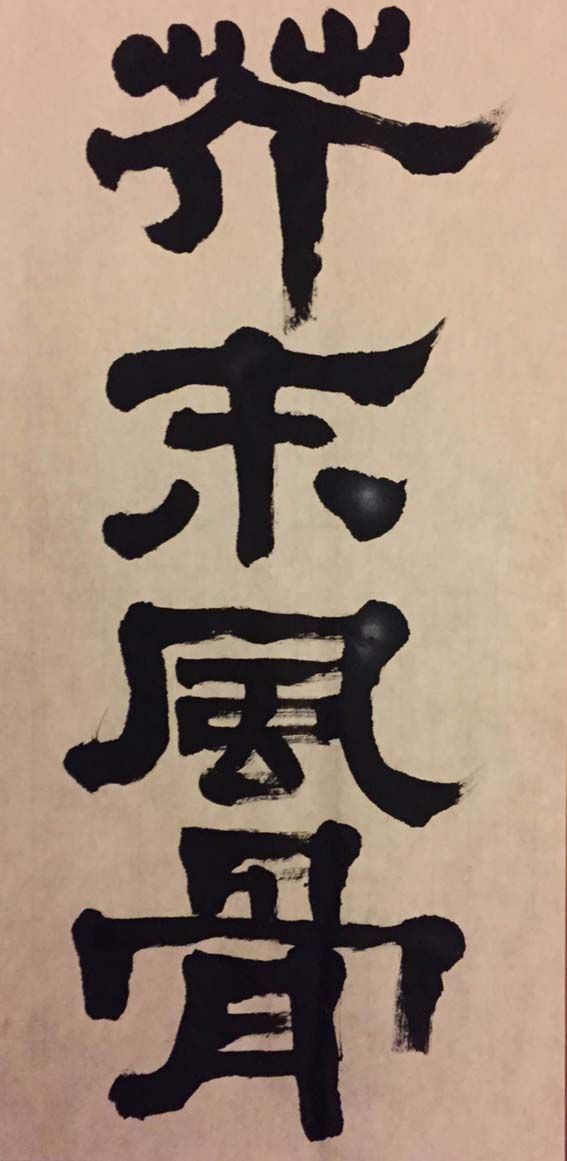 芥末風骨